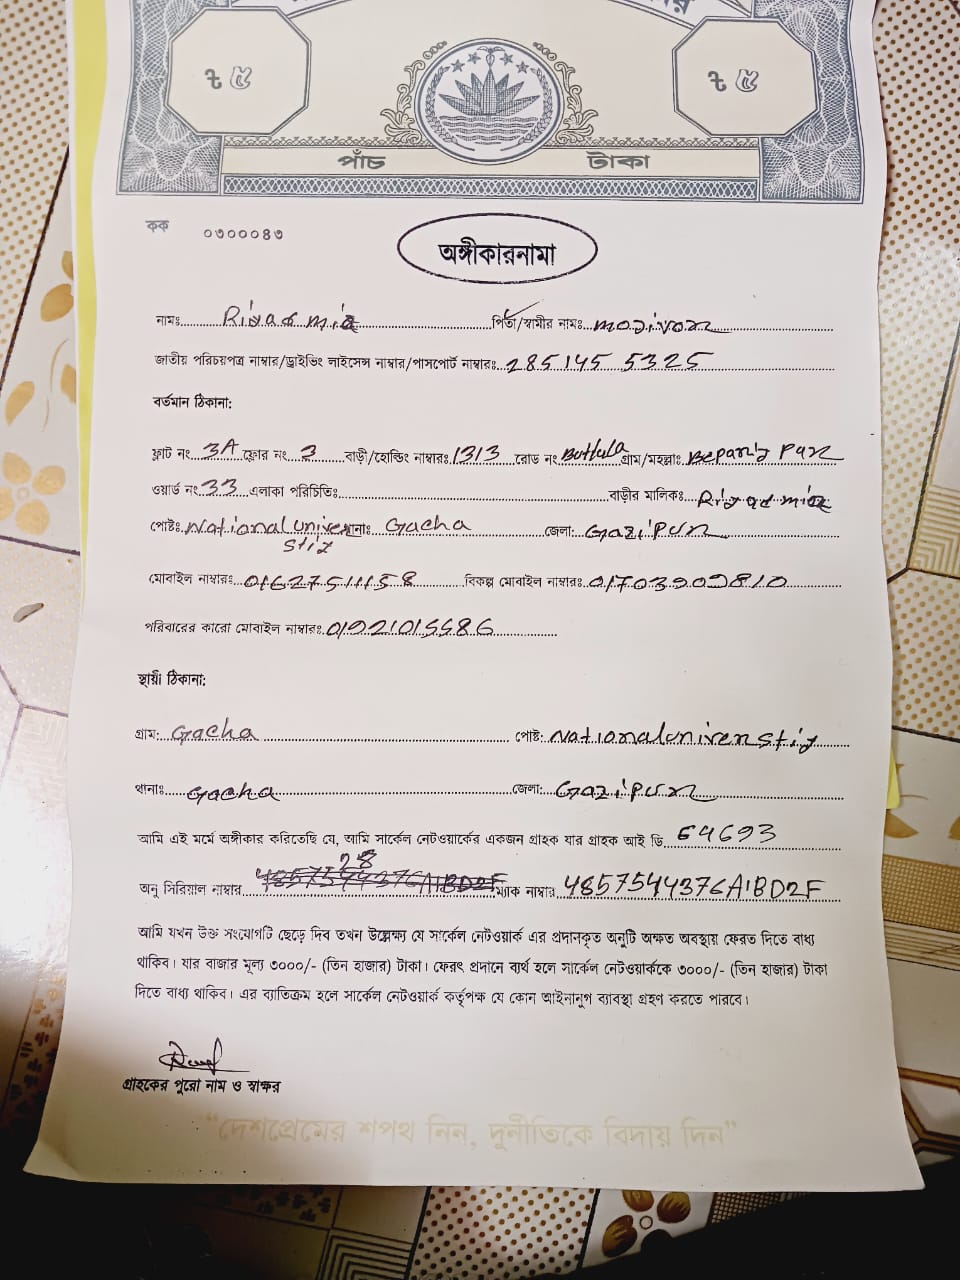 ৳ ৫ ৳ ৫
পাঁচ টাকা
কক ০৩০০০৪৩
অঙ্গীকারনামা
নামঃ Riyad mia পিতা/স্বামীর নামঃ mojivor
জাতীয় পরিচয়পত্র নাম্বার/ড্রাইভিং লাইসেন্স নাম্বার/পাসপোর্ট নাম্বারঃ 285145 5325
বর্তমান ঠিকানা:
ফ্লাট নং 3A ফ্লোর নং 3 বাড়ী/হোল্ডিং নাম্বারঃ 1313 রোড নং Buttula গ্রাম/মহল্লাঃ Bepariy Pur
ওয়ার্ড নং 33 এলাকা পরিচিতিঃ বাড়ীর মালিকঃ Riyad mia
পোষ্টঃ National univer থানাঃ Gacha জেলা: Gazipur
stiy
মোবাইল নাম্বারঃ 01627511158 বিকল্প মোবাইল নাম্বারঃ 01703909810
পরিবারের কারো মোবাইল নাম্বারঃ 01921015586
স্থায়ী ঠিকানা:
গ্রাম: Gacha পোষ্ট: National universtiy
থানাঃ Gacha জেলা: Gazipur
আমি এই মর্মে অঙ্গীকার করিতেছি যে, আমি সার্কেল নেটওয়ার্কের একজন গ্রাহক যার গ্রাহক আই ডি 64693
28
অনু সিরিয়াল নাম্বার 4857544376A1BD2F ম্যাক নাম্বার 4857544376A1BD2F
আমি যখন উক্ত সংযোগটি ছেড়ে দিব তখন উল্লেক্ষ্য যে সার্কেল নেটওয়ার্ক এর প্রদানকৃত অনুটি অক্ষত অবস্থায় ফেরত দিতে বাধ্য
থাকিব। যার বাজার মূল্য ৩০০০/- (তিন হাজার) টাকা। ফেরৎ প্রদানে ব্যর্থ হলে সার্কেল নেটওয়ার্ককে ৩০০০/- (তিন হাজার) টাকা
দিতে বাধ্য থাকিব। এর ব্যতিক্রম হলে সার্কেল নেটওয়ার্ক কর্তৃপক্ষ যে কোন আইনানুগ ব্যাবস্থা গ্রহণ করতে পারবে।
গ্রাহকের পুরো নাম ও স্বাক্ষর
“দেশপ্রেমের শপথ নিন, দুর্নীতিকে বিদায় দিন”